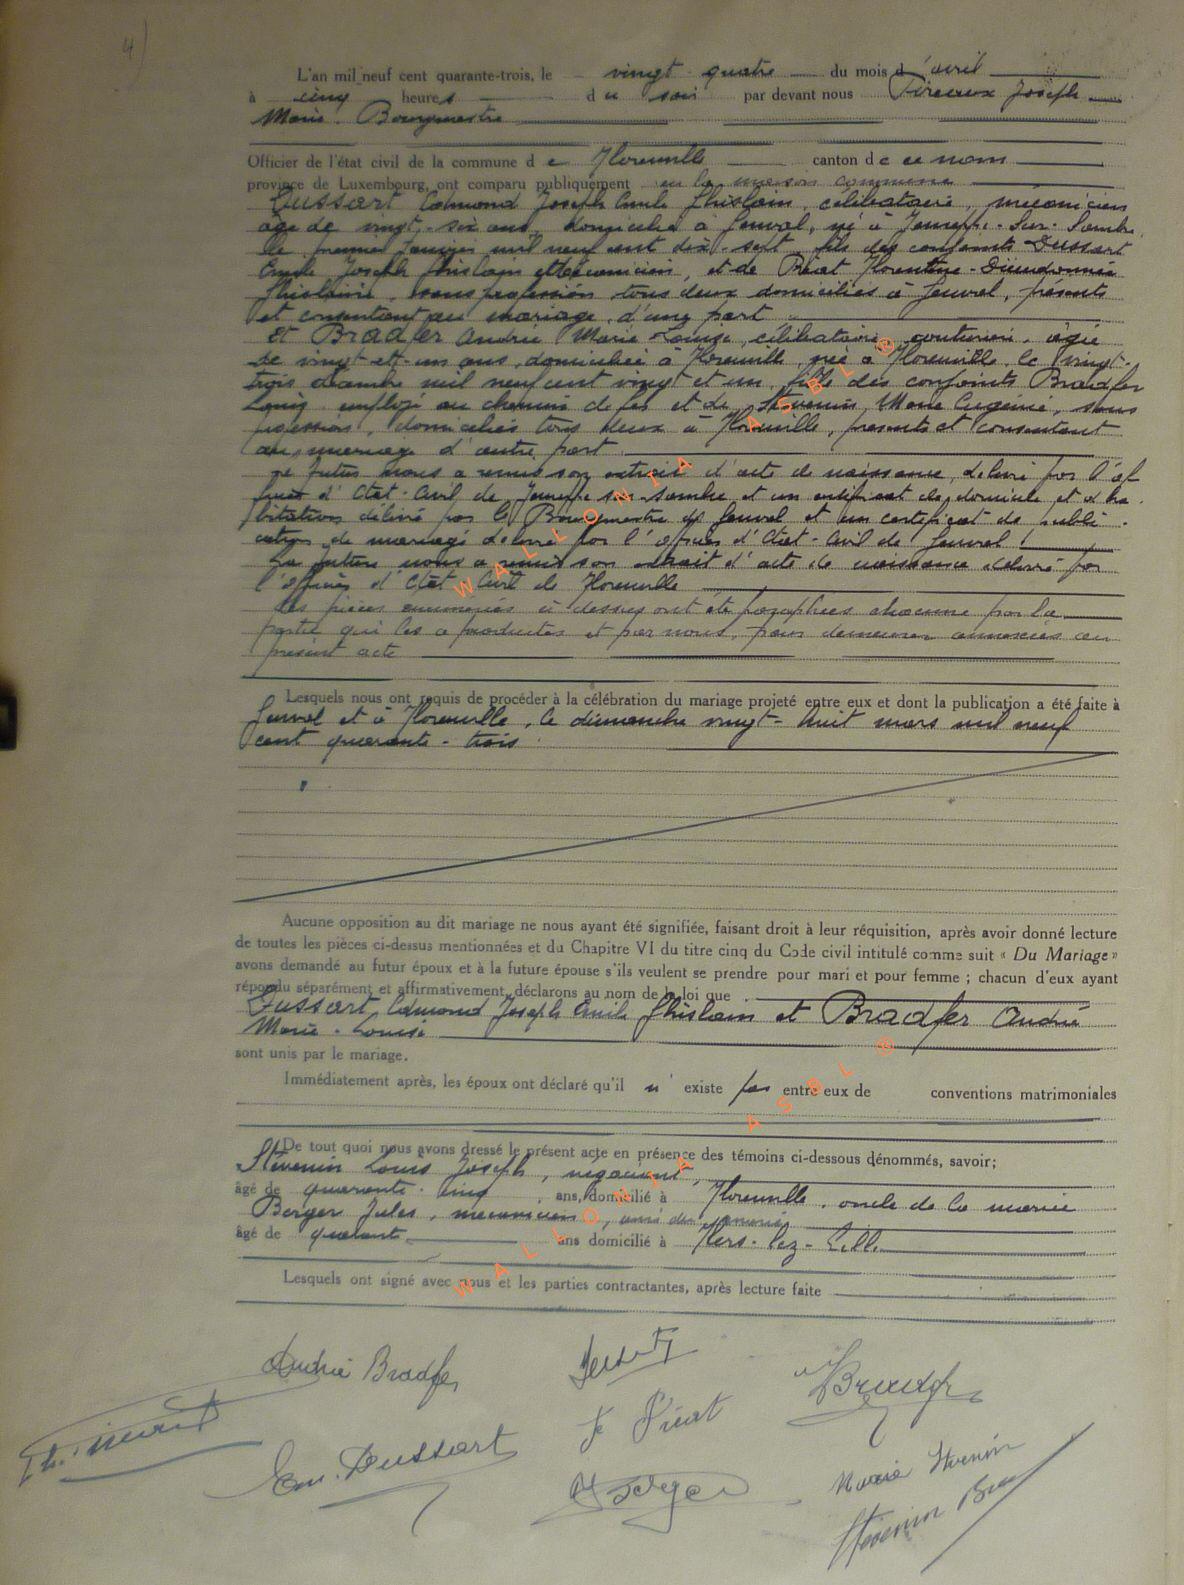 4)
L'an mil neuf cent quarante-trois, le vingt quatre du mois d'avril
à cinq heures du soir par devant nous Joseph
Marie Bourgmestre
Officier de l'état civil de la commune de Florenville canton de ce nom
province de Luxembourg, ont comparu publiquement en la maison commune
Dussart Edmond Joseph Emile Ghislain, célibataire, mécanicien
âgé de vingt-six ans, domicilié à Genval, né à Jemeppe-Sur-Sambre
le premier janvier mil neuf cent dix-sept, fils des conjoints Dussart
Emile Joseph Ghislain mécanicien, et de Piérat Florentine-Dieudonnée
Ghislaine, sans profession tous deux domiciliés à Genval, présents
et consentant au mariage, d'une part
Et Bradfer Andrée Marie-Louise, célibataire, couturière, âgée
de vingt-et-un ans, domiciliée à Florenville, née à Florenville, le vingt-
trois décembre mil neuf cent vingt et un, fille des conjoints Bradfer
Louis employé au chemin de fer et de Stévenin Marie Eugénie, sans
profession, domiciliés tous deux à Florenville, présents et consentant
au mariage d'autre part
Le futur nous a remis son extrait d'acte de naissance, délivré par l'of
ficier d'Etat-Civil de Jemeppe sur-Sambre et un certificat de domicile et d'ha
bitation délivré par le Bourgmestre de Genval et un certificat de publi-
cation de mariage délivré par l'officier d'Etat-Civil de Genval!
La future nous a remis son extrait d'acte de naissance délivré par
l'officier d'Etat Civil de Florenville
Les pièces énumérées ci dessus ont été paraphées chacune par la
partie qui les a produites et par nous, pour demeurer annexées au
présent acte
Lesquels nous ont requis de procéder à la célébration du mariage projeté entre eux et dont la publication a été faite à
Genval et à Florenville, le dimanche vingt-huit mars mil neuf
cent quarante-trois.
Aucune opposition au dit mariage ne nous ayant été signifiée, faisant droit à leur réquisition, après avoir donné lecture
de toutes les pièces ci-dessus mentionnées et du Chapitre VI du titre cinq du Code civil intitulé comme suit « Du Mariage »
avons demandé au futur époux et à la future épouse s'ils veulent se prendre pour mari et pour femme ; chacun d'eux ayant
répondu séparément et affirmativement, déclarons au nom de la loi que
Dussart Edmond Joseph Emile Ghislain et Bradfer Andrée
Marie-Louise
sont unis par le mariage.
Immédiatement après, les époux ont déclaré qu'il n'existe pas entre eux de conventions matrimoniales
De tout quoi nous avons dressé le présent acte en présence des témoins ci-dessous dénommés, savoir;
Stévenin Louis Joseph, négociant,
âgé de quarante-cinq ans, domicilié à Florenville, oncle de la mariée
Berger Jules, mécanicien, ami des
âgé de quarante ans domicilié à
Lesquels ont signé avec nous et les parties contractantes, après lecture faite
Andrée Bradfer
Bradfer
Piérat
Em. Dussart
Berger
Marie Stvenin
Stévenin
WALLONIA ASBL ®
WALLONIA ASBL ®